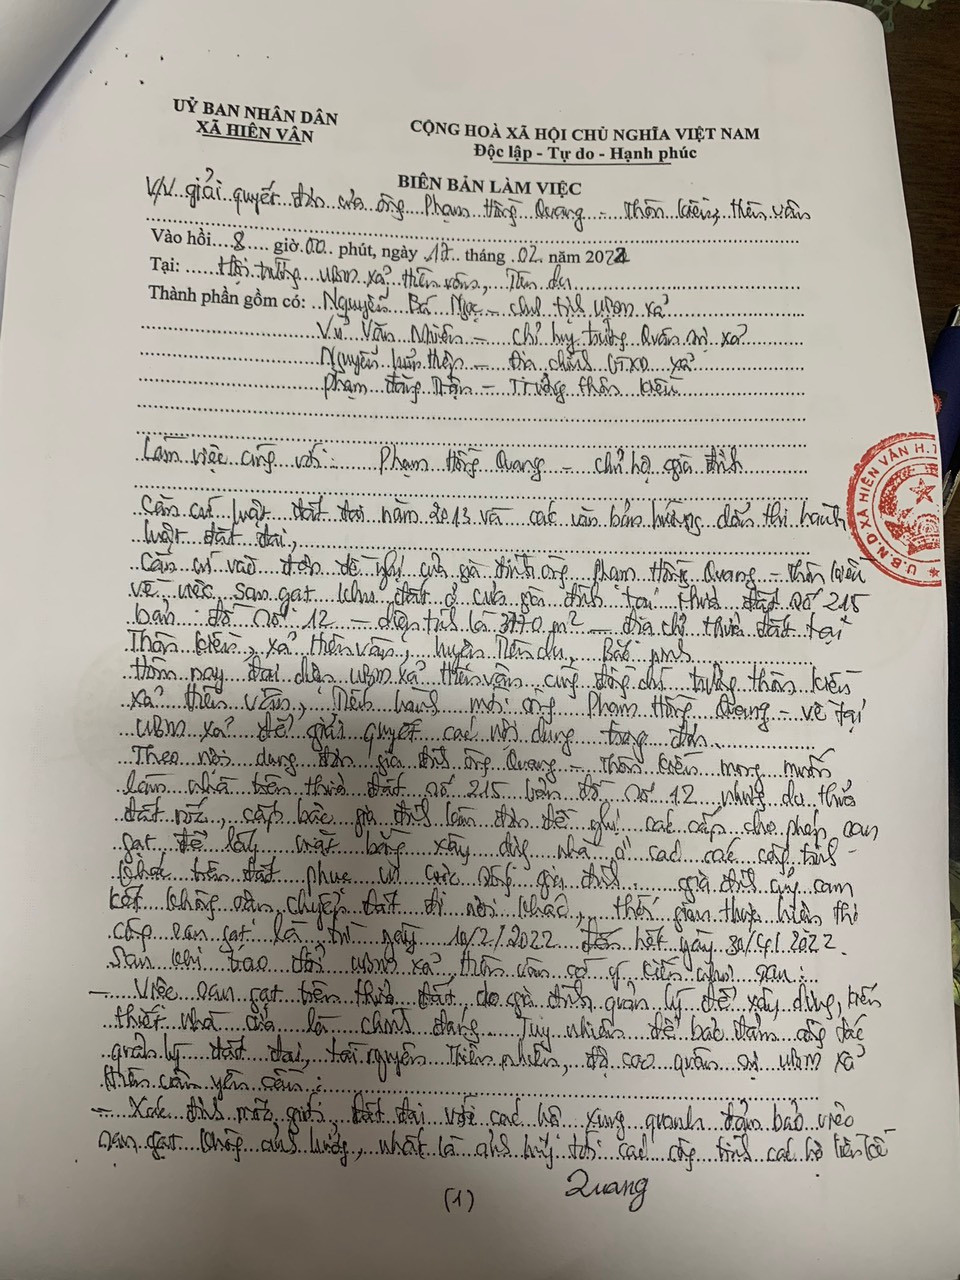 UỶ BAN NHÂN DÂN
XÃ HIÊN VÂN
CỘNG HOÀ XÃ HỘI CHỦ NGHĨA VIỆT NAM
Độc lập - Tự do - Hạnh phúc
BIÊN BẢN LÀM VIỆC
V/v giải quyết đơn của ông Phạm Hồng Quang - Thôn Kiều, Hiên Vân
Vào hồi 8 giờ 00 phút, ngày 17 tháng 02 năm 2022
Tại: Hội trường UBND xã Hiên Vân, Tiên Du
Thành phần gồm có: Nguyễn Bá Ngọc - chủ tịch UBND xã
Vũ Văn Nhiên - chỉ huy trưởng Quân sự xã
Nguyễn Hữu - Địa chính GTXD xã
Phạm Đăng - Trưởng thôn Kiều
Làm việc cùng với: Phạm Hồng Quang - chủ hộ gia đình
Căn cứ luật đất đai năm 2013 và các văn bản hướng dẫn thi hành
luật đất đai,
Căn cứ vào đơn đề nghị của gia đình ông Phạm Hồng Quang - Thôn Kiều
về việc san gạt khu đất ở của gia đình tại thửa đất số 215
bản đồ số 12 - diện tích là 3770 m² - địa chỉ thửa đất tại
Thôn Kiều, xã Hiên Vân, huyện Tiên Du, Bắc Ninh
Hôm nay đại diện UBND xã Hiên Vân cùng đồng chí trưởng thôn Kiều
xã Hiên Vân, tiến hành mời ông Phạm Hồng Quang - về tại
UBND xã để giải quyết các nội dung trong đơn.
Theo nội dung đơn gia đình ông Quang - Thôn Kiều mong muốn
làm nhà trên thửa đất số 215 bản đồ số 12 nhưng do thửa
đất dốc, cấp bậc gia đình làm đơn đề nghị các cấp cho phép san
gạt để lấy mặt bằng xây dựng nhà ở các công trình
khác trên đất phục vụ cuộc sống gia đình. gia đình ông cam
kết không vận chuyển đất đi nơi khác, thời gian thực hiện thi
công san gạt là từ ngày 10/2/2022 đến hết ngày 30/4/2022.
Sau khi trao đổi UBND xã Hiên Vân có ý kiến như sau:
- Việc san gạt trên thửa đất do gia đình quản lý để xây dựng, kiến
thiết nhà cửa là chính đáng. Tuy nhiên để bảo đảm công tác
quản lý đất đai, tài nguyên thiên nhiên, độ cao quân sự UBND xã
Hiên Vân yêu cầu:
- Xác định mốc giới, đất đai với các hộ xung quanh đảm bảo việc
san gạt không ảnh hưởng, nhất là tới các công trình các hộ liền kề
(1)
Quang
U.B.N.D XÃ HIÊN VÂN H.T